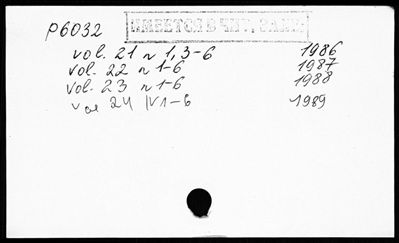 P6032
ИМЕЕТСЯ В ЧИТ. ЗАЛЕ
vol. 21 n 1, 3-6 1986
vol. 22 n 1-6 1987
vol. 23 n 1-6 1988
vol 24 N 1-6 1989